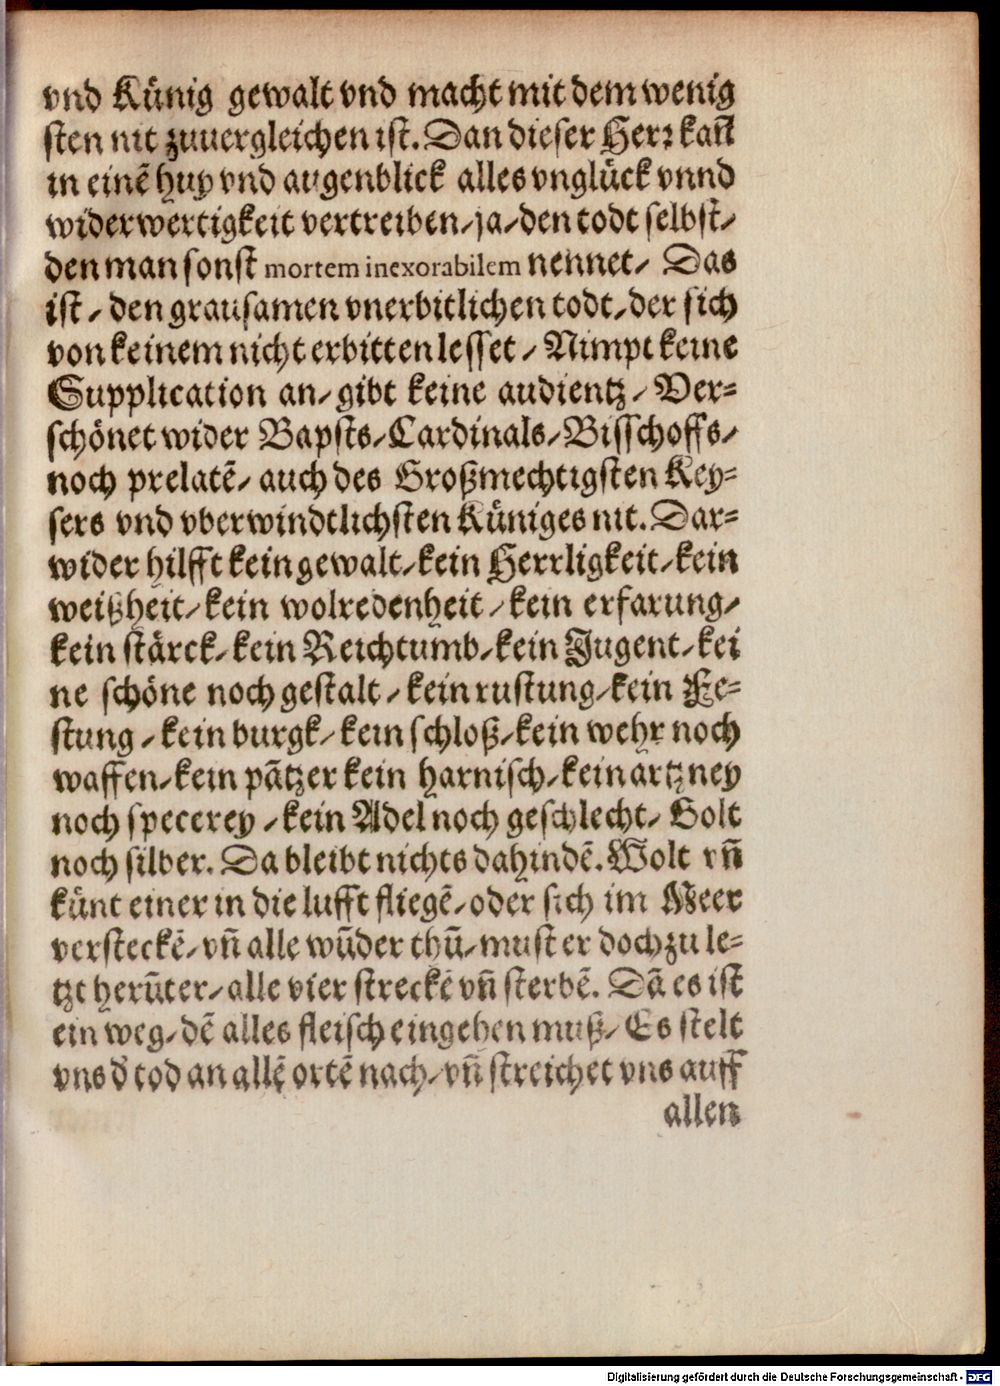 vnd Künig gewalt vnd macht mit dem wenig
sten nit zuuergleichen ist. Dan dieser Herꝛ kan̄
in einē huy vnd augenblick alles vnglück vnnd
widerwertigkeit vertreiben/ ja/ den todt selbst/
den man sonst mortem inexorabilem nennet/ Das
ist/ den grausamen vnerbitlichen todt/ der sich
von keinem nicht erbitten lesset/ Nimpt keine
Supplication an/ gibt keine audientz/ Ver⸗
schönet wider Bapsts/ Cardinals/ Bisschoffs/
noch prelatē/ auch des Großmechtigsten Key⸗
sers vnd vberwindtlichsten Küniges nit. Dar⸗
wider hilfft kein gewalt/ kein Herrligkeit/ kein
weißheit/ kein wolredenheit/ kein erfarung/
kein stärck/ kein Reichtumb/ kein Jugent/ kei
ne schöne noch gestalt/ kein rustung/ kein Fe⸗
stung/ kein burgk/ kein schloß/ kein wehr noch
waffen/ kein pātzer kein harnisch/ kein artzney
noch specerey/ kein Adel noch geschlecht/ Golt
noch silber. Da bleibt nichts dahindē. Wolt vn̄
künt einer in die lufft fliegē/ oder sich im Meer
versteckē/ vn̄ alle wūder thū/ must er doch zu le⸗
tzt herūter/ alle vier streckē vn̄ sterbē. Dā es ist
ein weg/ dē alles fleisch eingehen muß/ Es stelt
vns d̄ tod an allē ortē nach/ vn̄ streichet vns auff
allen
Digitalisierung gefördert durch die Deutsche Forschungsgemeinschaft - DFG